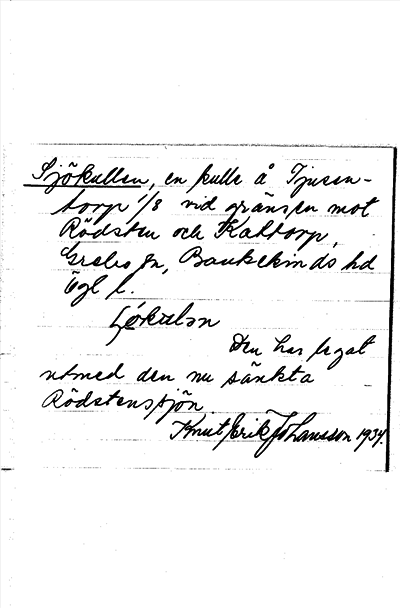 Sjökullen, en kulle å Tjusen-
torp 1/8 vid gränsen mot
Rödsten och Kaltorp,
Grebo sn, Bankekinds hd
Ögl l.
Den har legat
utmed den nu sänkta
Rödstenssjön.
Knut Erik Johansson 1934.